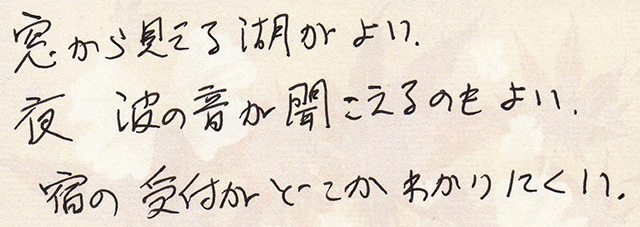 窓から見える湖がよい.
夜 波の音が聞こえるのもよい.
宿の受付がどこかわかりにくい.